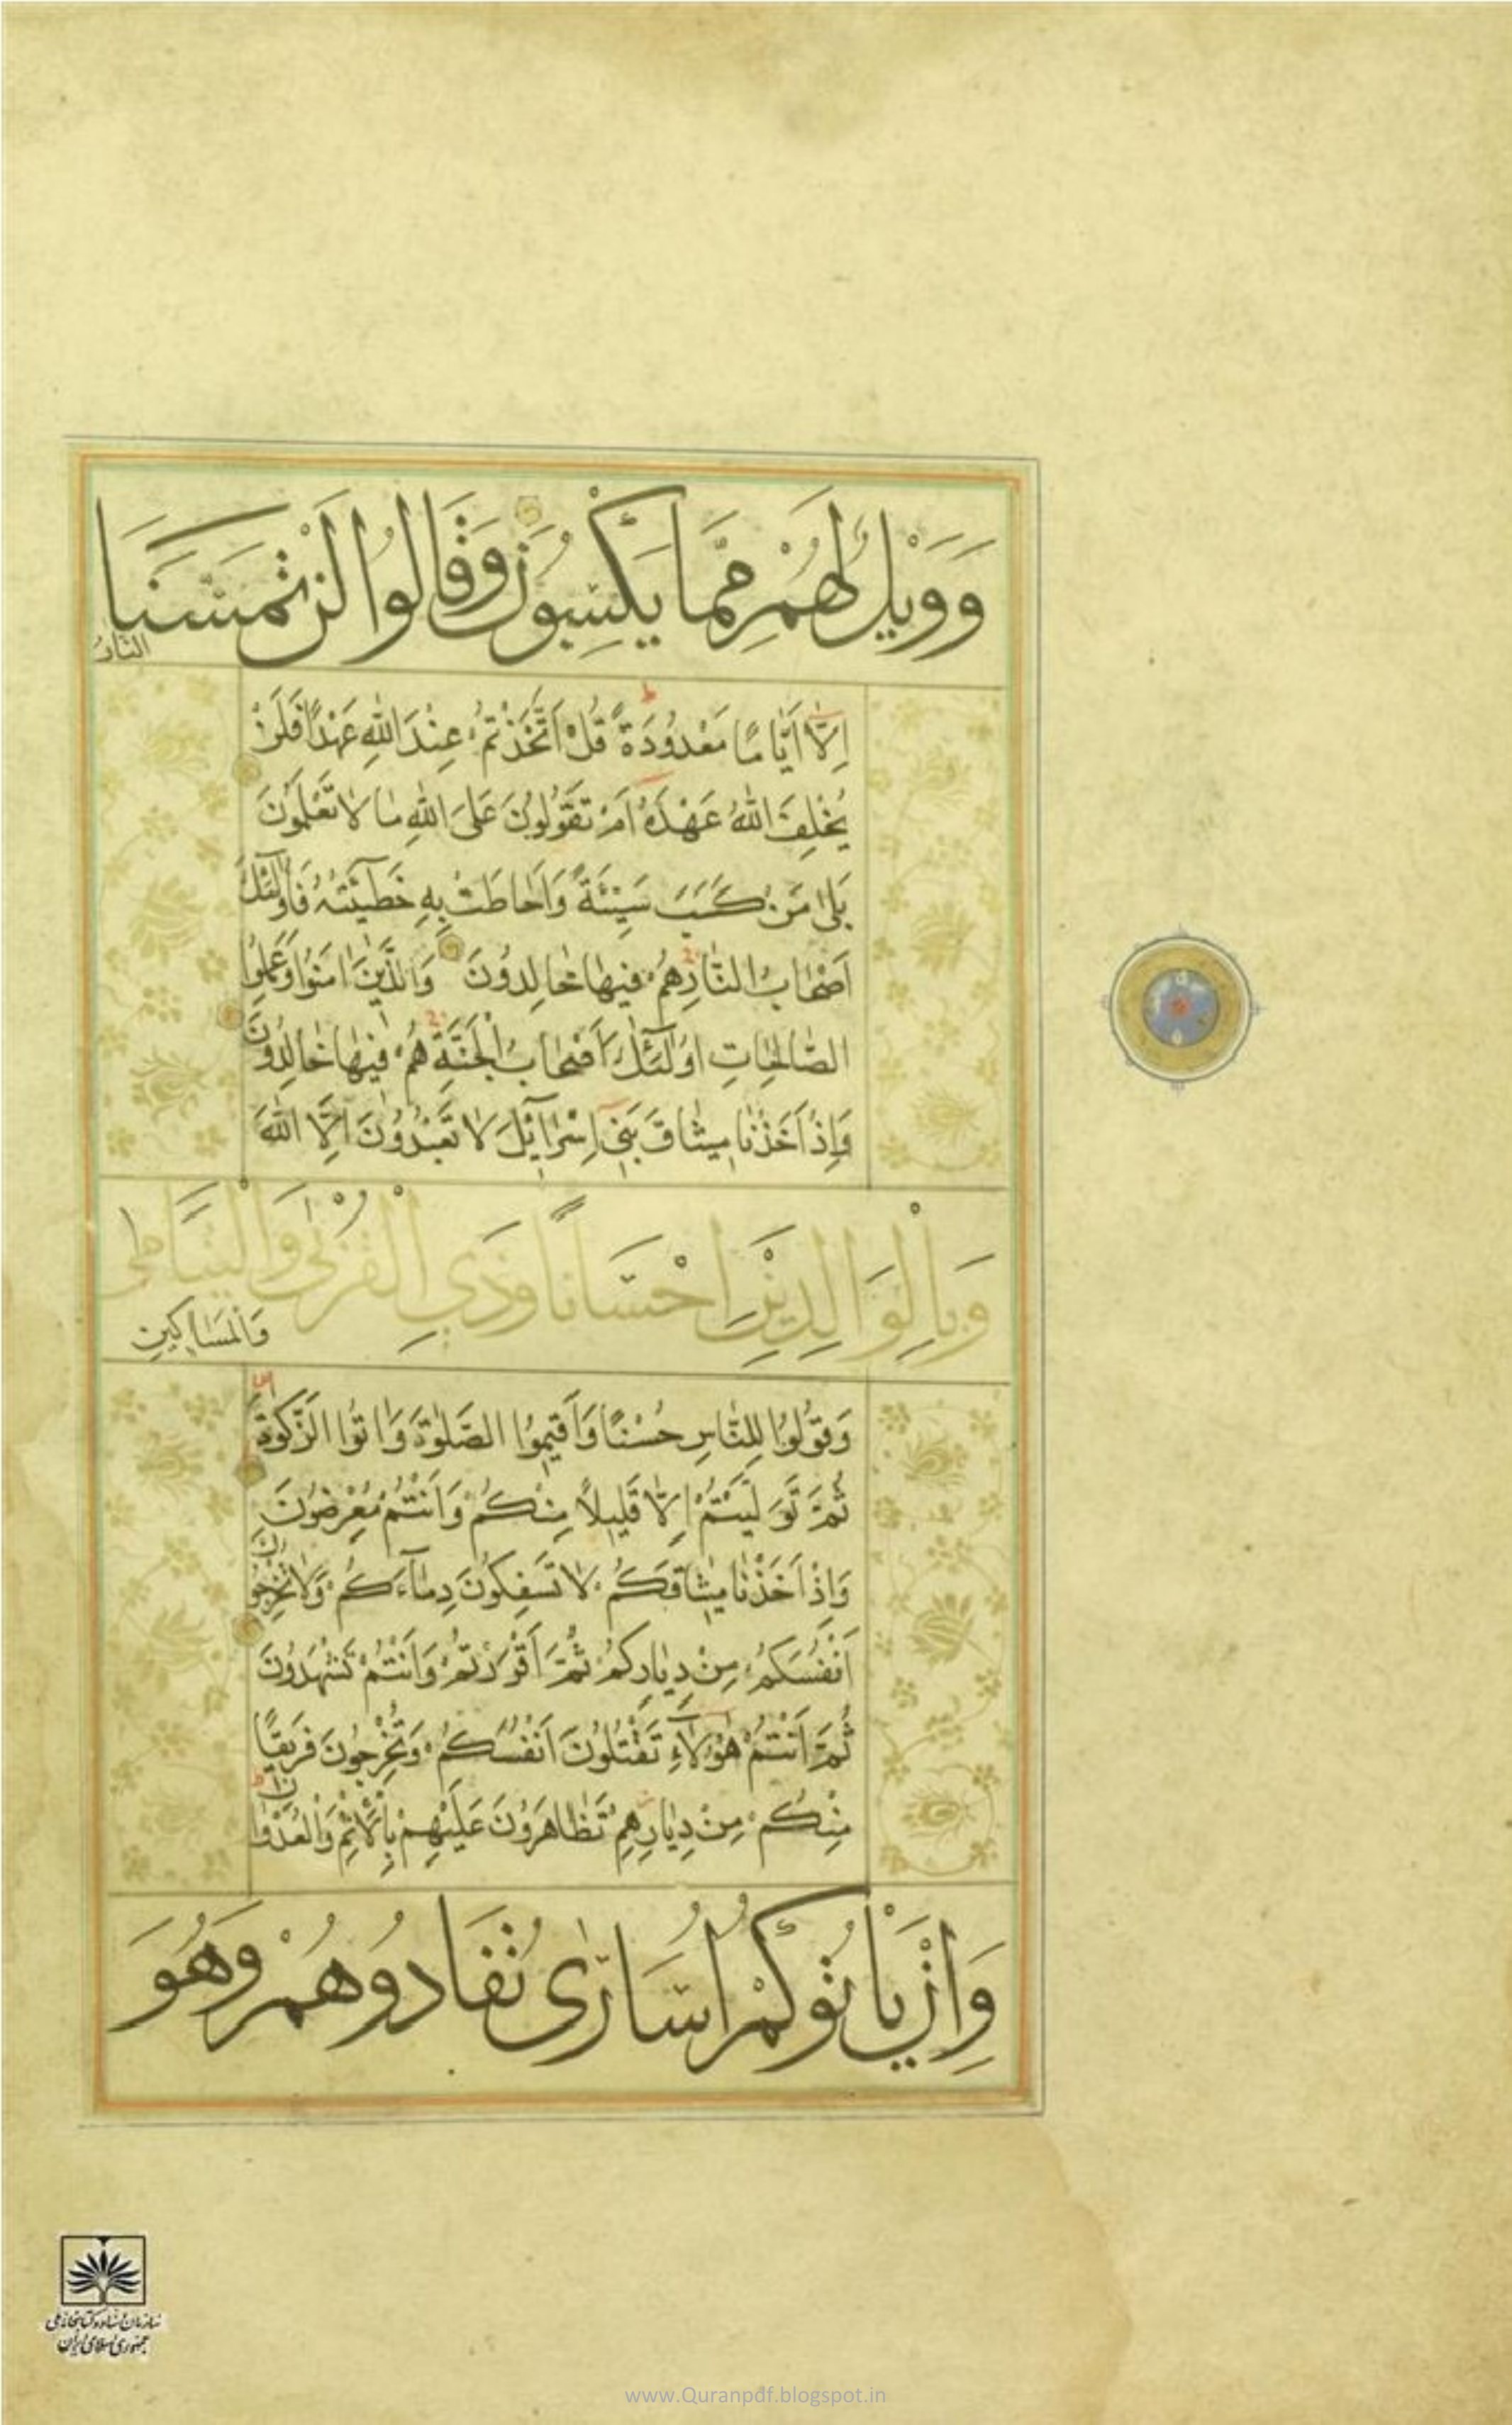 وَوَيْلٌ لَهُمْ مِمَّا يَكْسِبُونَ وَقَالُوا لَنْ تَمَسَّنَا
النَّارُ
اِلَّا اَيَّامًا مَعْدُودَةً قُلْ اَتَّخَذْتُمْ عِنْدَ اللّٰهِ عَهْدًا فَلَنْ
يُخْلِفَ اللّٰهُ عَهْدَهُ اَمْ تَقُولُونَ عَلَى اللّٰهِ مٰا لٰا تَعْلَمُونَ
بَلٰى مَنْ كَسَبَ سَيِّئَةً وَاَحٰاطَتْ بِهِ خَطٓيئَتُهُ فَاُولٰٓئِكَ
اَصْحٰابُ النّٰارِ هُمْ فيهٰا خٰالِدُونَ وَالَّذينَ اٰمَنُوا وَعَمِلُوا
الصّٰالِحٰاتِ اُولٰٓئِكَ اَصْحٰابُ الْجَنَّةِ هُمْ فيهٰا خٰالِدُونَ
وَاِذْ اَخَذْنٰا ميثٰاقَ بَنٓي اِسْرٰآئيلَ لٰا تَعْبُدُونَ اِلَّا اللّٰهَ
وَبِالْوَالِدَيْنِ اِحْسَانًا وَذِي الْقُرْبٰى وَالْيَتَامٰى
وَالْمَسٰاكينِ
وَقُولُوا لِلنّٰاسِ حُسْنًا وَاَقيمُوا الصَّلٰوةَ وَاٰتُوا الزَّكٰوةَ
ثُمَّ تَوَلَّيْتُمْ اِلّٰا قَليلًا مِنْكُمْ وَاَنْتُمْ مُعْرِضُونَ
وَاِذْ اَخَذْنٰا ميثٰاقَكُمْ لٰا تَسْفِكُونَ دِمٰآءَكُمْ وَلٰا تُخْرِجُونَ
اَنْفُسَكُمْ مِنْ دِيٰارِكُمْ ثُمَّ اَقْرَرْتُمْ وَاَنْتُمْ تَشْهَدُونَ
ثُمَّ اَنْتُمْ هٰٓؤُلٰٓاءِ تَقْتُلُونَ اَنْفُسَكُمْ وَتُخْرِجُونَ فَريقًا
مِنْكُمْ مِنْ دِيٰارِهِمْ تَظٰاهَرُونَ عَلَيْهِمْ بِالْاِثْمِ وَالْعُدْوٰانِ
وَاِنْ يَأْتُوكُمْ اُسَارٰى تُفَادُوهُمْ وَهُوَ
سازمان اسناد و کتابخانه ملی
جمهوری اسلامی ایران
www.Quranpdf.blogspot.in